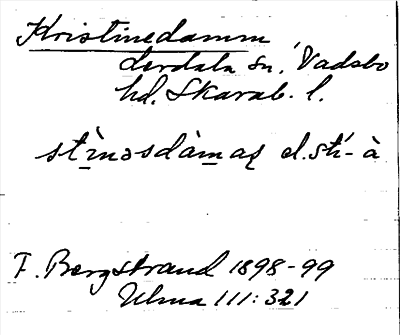 Kristinedamm
Lerdala sn, Vadsbo
hd. Skarab. l.
stìnəsdàmaʀ el. stí-à
F. Bergstrand 1898-99
Ulma 111:321